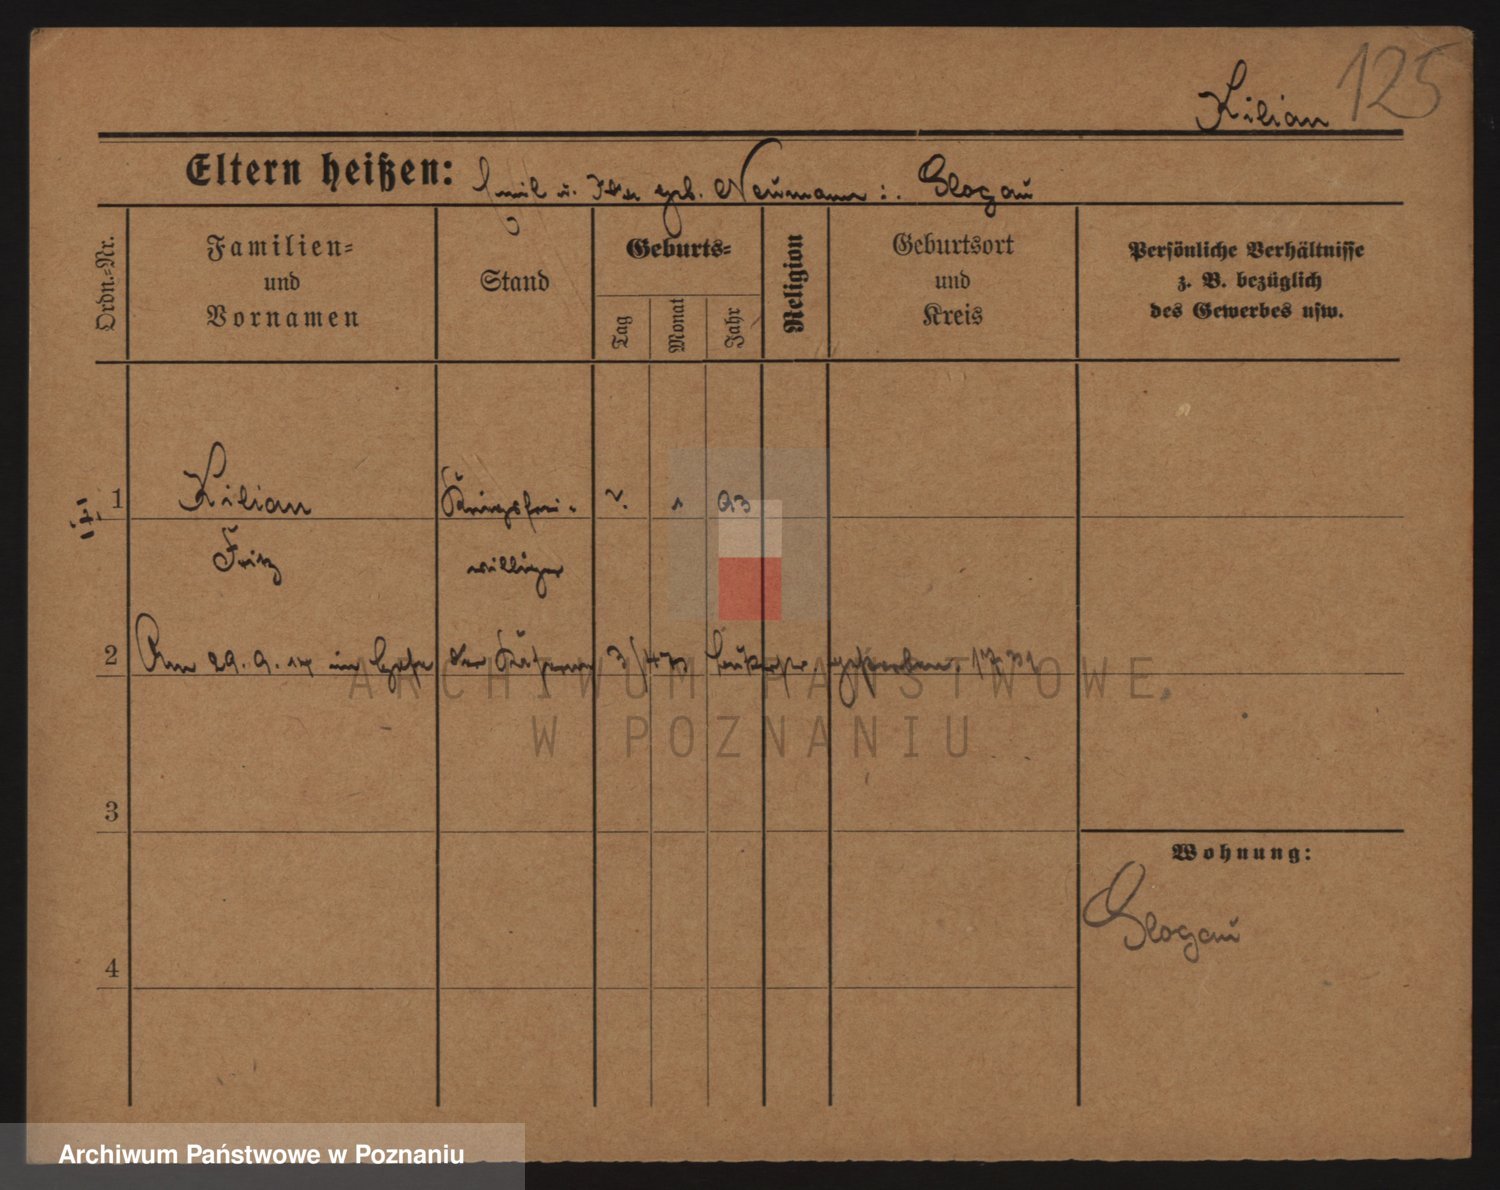 125
Kilian
Eltern heißen: Emil u. Ida geb. Neumann i. Glogau
Ordn.-Nr.
Familien-
und
Vornamen
Stand
Geburts-
Tag
Monat
Jahr
Religion
Geburtsort
und
Kreis
Persönliche Verhältnisse
z. B. bezüglich
des Gewerbes usw.
1 Kilian Kriegsfrei- 2. 1 93
Fritz williger
2 Am 29.9.14 im der gestorben.
3
4
Wohnung:
Glogau
ARCHIWUM PAŃSTWOWE
W POZNANIU
Archiwum Państwowe w Poznaniu